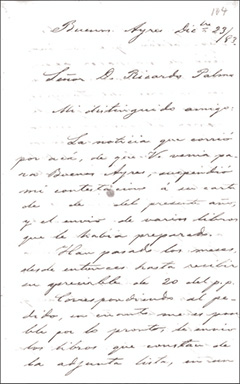 184
Buenos Ayres Dicbre 23/83
Señor D. Ricardo Palma
Mi distinguido amigo:
La noticia que corrió
por acá, de que V. venia pa-
ra Buenos Ayres, suspendió
mi contestacion a su carta
de - de - del presente año,
y el envio de varios libros
que le había preparado.
Han pasado los meses,
desde entónces hasta recibir
su apreciable de 20 del p.p.
Correspondiendo al pe-
dido, en cuanto me es posi-
ble por lo pronto, le envio
los libros que constan de
la adjunta lista, en un